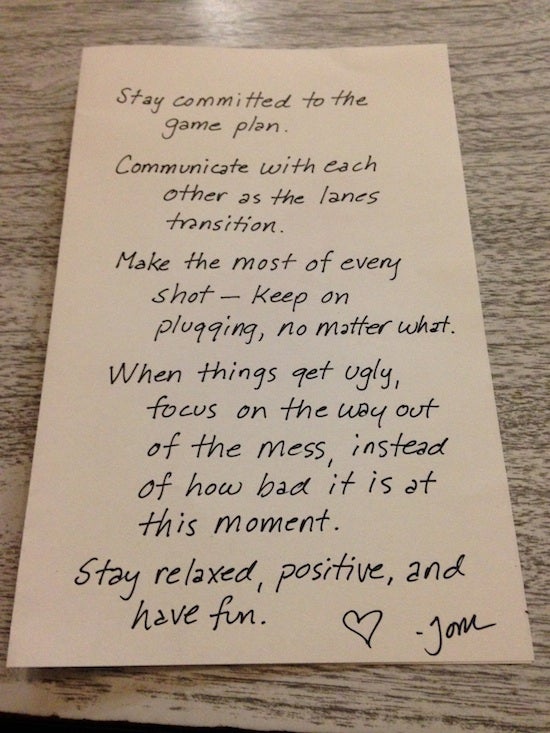 Stay committed to the
game plan.
Communicate with each
other as the lanes
transition.
Make the most of every
shot — keep on
plugging, no matter what.
When things get ugly,
focus on the way out
of the mess, instead
of how bad it is at
this moment.
Stay relaxed, positive, and
have fun. ♡